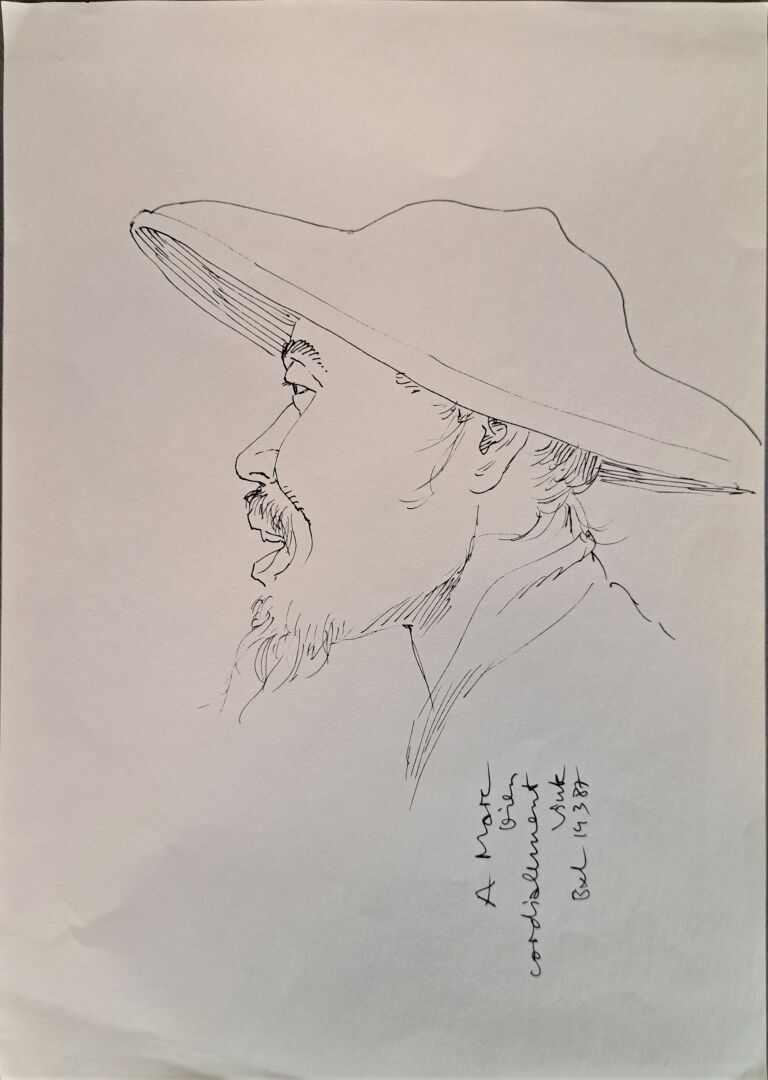 A Marc
bien
cordialement
Vink
Bxl 19 3 87